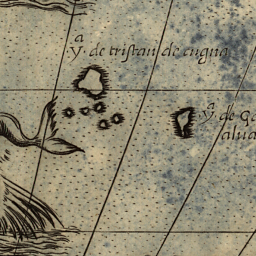 yª de tristan de cugna
yª de Go
alua